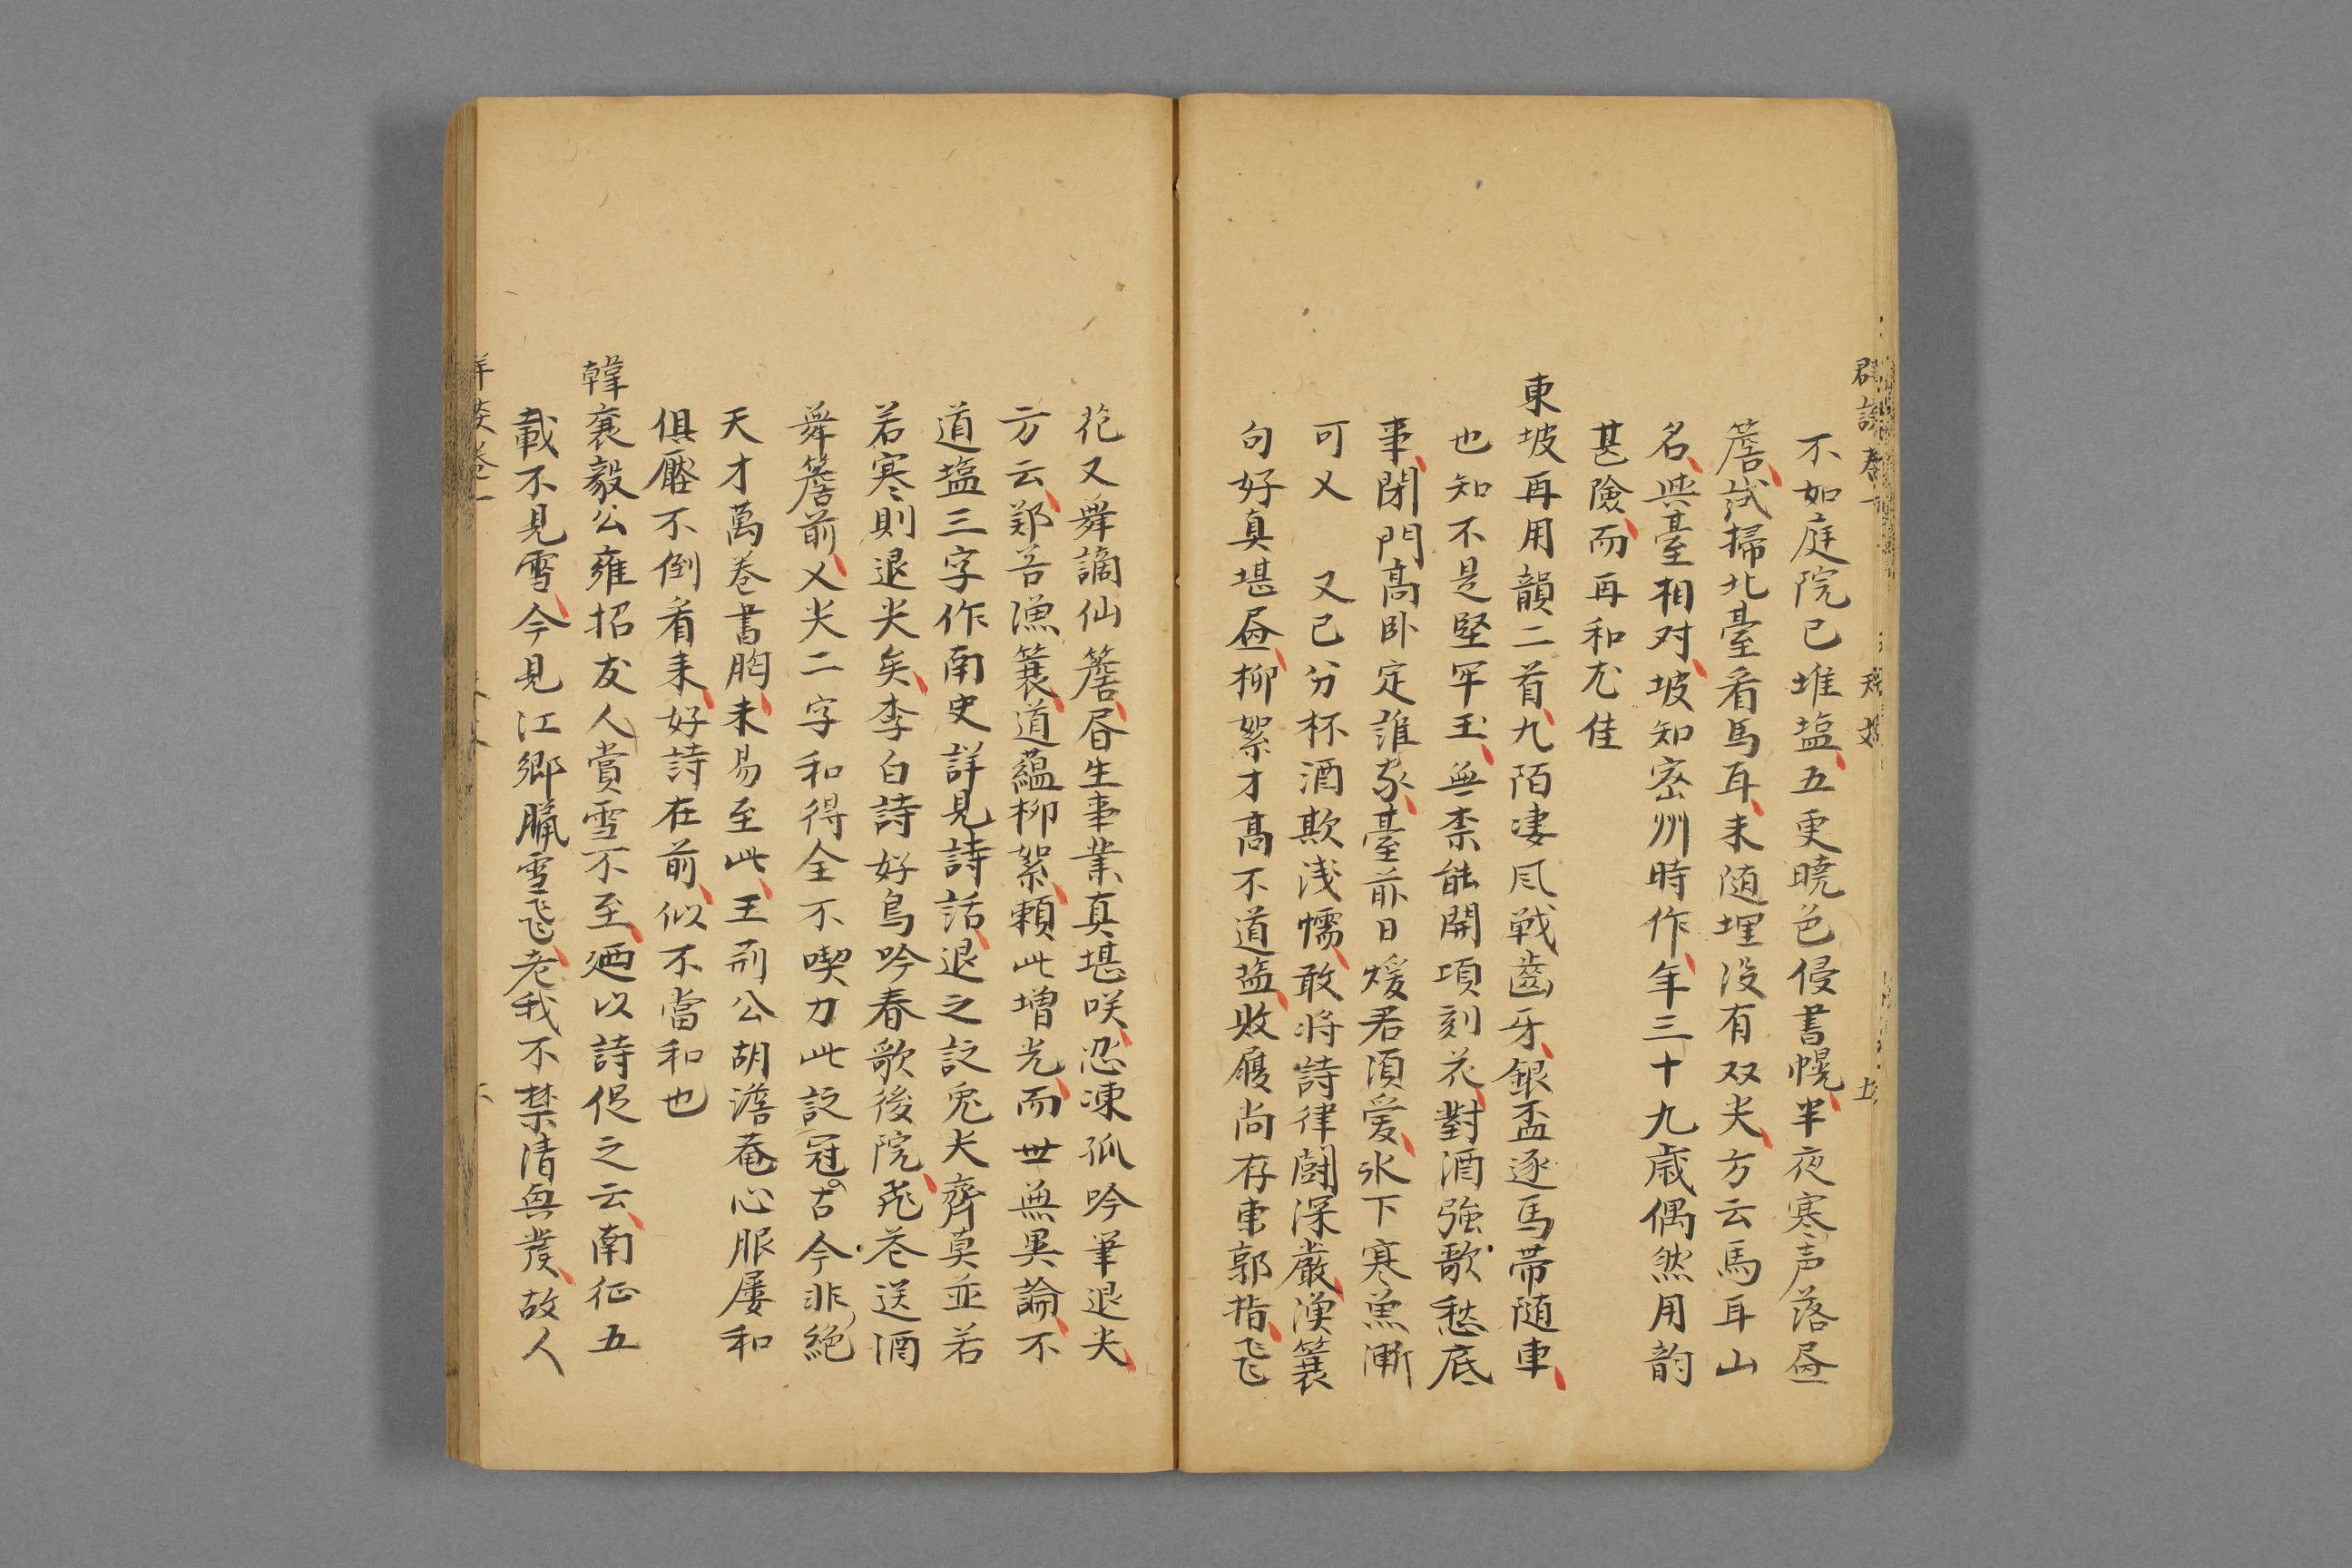 不如庭院已堆塩五更曉色侵書幌半夜寒声落畫
簷試掃北臺看馬耳未随埋没有双尖方云馬耳山
名與臺相对坡知密州時作年三十九歳偶然用韵
甚險而再和尤佳
東坡再用韻二首九陌凄风戦齒牙銀盃逐馬帯随車
也知不是堅牢玉無柰能開頃刻花對酒強歌愁底
事閉門髙卧定誰家臺前日煖君須爱氷下寒魚漸
可乂　又已分杯酒欺浅懦敢将詩律鬪深厳漁簑
句好真堪畫柳絮才髙不道塩敗履尚存東郭指飞
花又舞謫仙簷昏生事業真堪咲忍凍孤吟筆退尖
方云郑谷漁簑道蘊柳絮頼此増光而世無異論不
道塩三字作南史詳見詩話退之説兎尖齊莫並若
若寒則退尖矣李白詩好鳥吟春歌後院飛花送酒
舞簷前乂尖二字和得全不喫力此説冠古今非絶
天才萬巻書胸未易至此王荊公胡澹菴心服屢和
俱壓不倒看来好詩在前似不當和也
韓襄毅公雍招友人賞雪不至廼以詩促之云南征五
載不見雪今見江郷臘雪飞老我不禁清興發故人